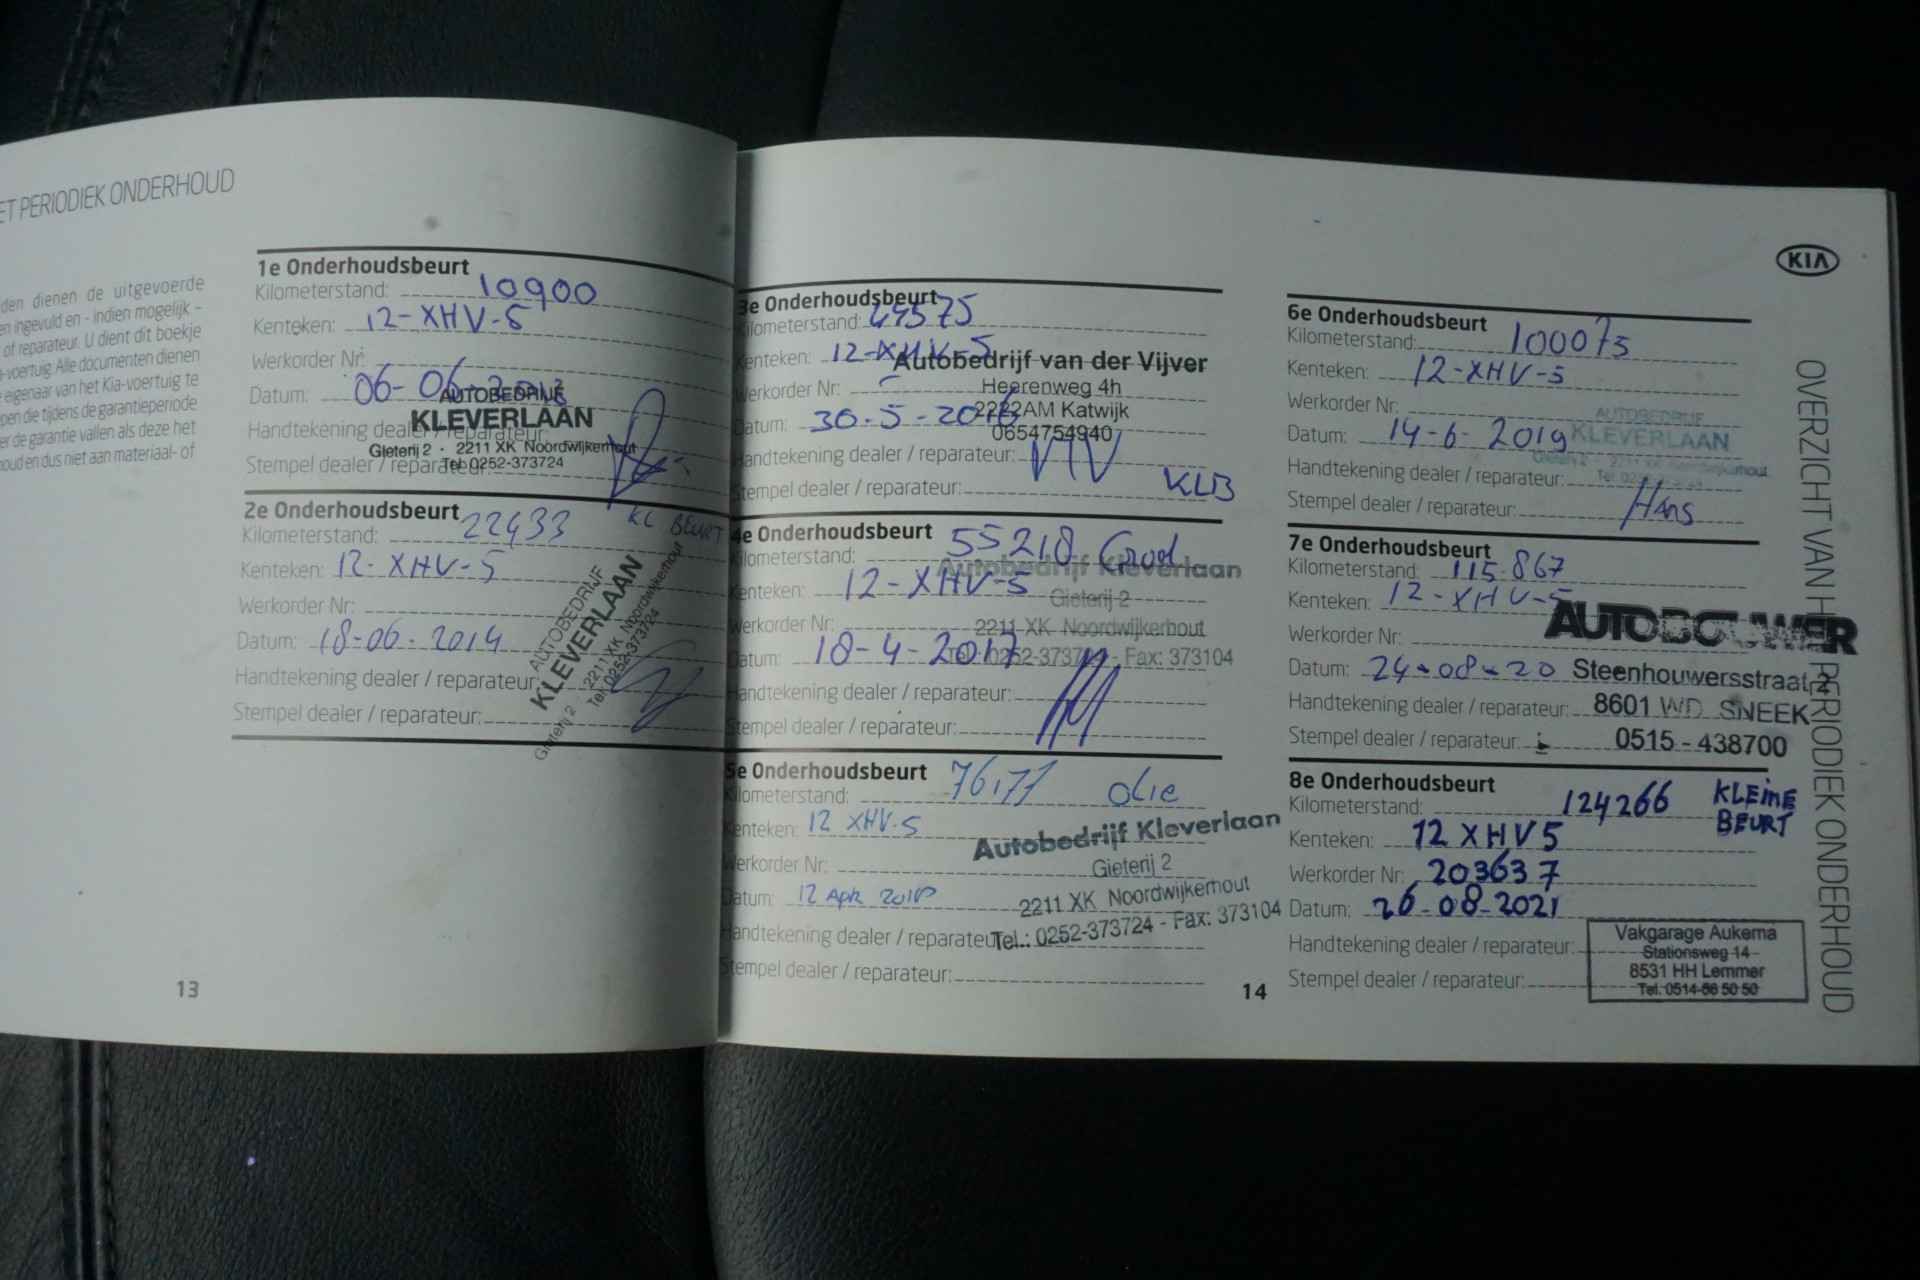 ET PERIODIEK ONDERHOUD
den dienen de uitgevoerde
en ingevuld en - indien mogelijk -
of reparateur. U dient dit boekje
-voertuig. Alle documenten dienen
eigenaar van het Kia-voertuig te
pen die tijdens de garantieperiode
er de garantie vallen als deze het
houd en dus niet aan materiaal- of
1e Onderhoudsbeurt
Kilometerstand: 10900
Kenteken: 12-XHV-5
Werkorder Nr:
Datum: 06-06-2013
AUTOBEDRIJF
KLEVERLAAN
Gieterij 2 - 2211 XK Noordwijkerhout
Tel. 0252-373724
Handtekening dealer / reparateur:
Stempel dealer / reparateur:
2e Onderhoudsbeurt
Kilometerstand: 22433 KL BEURT
Kenteken: 12-XHV-5
Werkorder Nr:
Datum: 18-06-2014
Handtekening dealer / reparateur:
Stempel dealer / reparateur:
AUTOBEDRIJF
KLEVERLAAN
Gieterij 2 - 2211 XK Noordwijkerhout
Tel. 0252-373724
13
3e Onderhoudsbeurt
Kilometerstand: 44575
Kenteken: 12-XHV-5
Werkorder Nr:
Datum: 30-5-2016
Autobedrijf van der Vijver
Heerenweg 4h
2222AM Katwijk
0654754940
Handtekening dealer / reparateur:
KLB
Stempel dealer / reparateur:
4e Onderhoudsbeurt
Kilometerstand: 55218 Groot
Kenteken: 12-XHV-5
Werkorder Nr:
Datum: 18-4-2017
Autobedrijf Kleverlaan
Gieterij 2
2211 XK Noordwijkerhout
Tel.: 0252-373724 - Fax: 373104
Handtekening dealer / reparateur:
Stempel dealer / reparateur:
5e Onderhoudsbeurt
Kilometerstand: olie
Kenteken: 12 XHV-5
Werkorder Nr:
Datum: 12 Apr 2018
Autobedrijf Kleverlaan
Gieterij 2
2211 XK Noordwijkerhout
Tel.: 0252-373724 - Fax: 373104
Handtekening dealer / reparateur:
Stempel dealer / reparateur:
14
6e Onderhoudsbeurt
Kilometerstand: 100075
Kenteken: 12-XHV-5
Werkorder Nr:
Datum: 14-6-2019
AUTOBEDRIJF
KLEVERLAAN
Gieterij 2 - 2211 XK Noordwijkerhout
Handtekening dealer / reparateur:
Stempel dealer / reparateur: Hans
7e Onderhoudsbeurt
Kilometerstand: 115.867
Kenteken: 12-XHV-5
Werkorder Nr:
Datum: 24-08-20
AUTOBOUWER
Steenhouwersstraat 2
8601 WD SNEEK
0515 - 438700
Handtekening dealer / reparateur:
Stempel dealer / reparateur:
8e Onderhoudsbeurt
Kilometerstand: 124266 KLEINE BEURT
Kenteken: 12 XHV5
Werkorder Nr: 203637
Datum: 26-08-2021
Handtekening dealer / reparateur:
Stempel dealer / reparateur:
Vakgarage Aukema
Stationsweg 14
8531 HH Lemmer
Tel. 0514-56 50 50
KIA
OVERZICHT VAN HET PERIODIEK ONDERHOUD